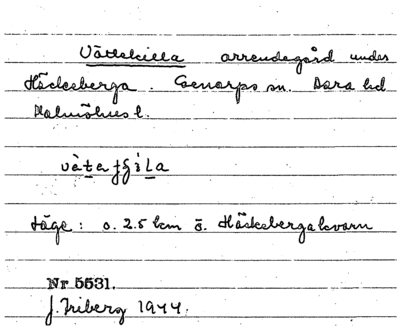 Vätteskilla arrendegård under
Häckeberga. Genarps sn. Bara hd
Malmöhus l.
Läge: o. 2.5 km ö. Häckeberga kvarn
Nr 5531.
J. Friberg 1944.